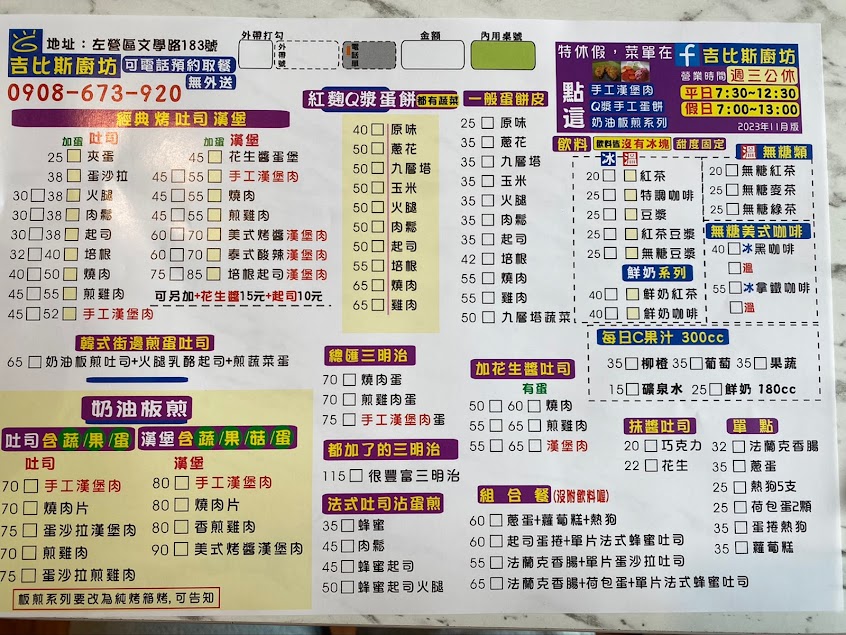 地址：左營區文學路183號
吉比斯廚坊 可電話預約取餐
無外送
0908-673-920
外帶打勾 外帶號 電話單 金額 內用桌號
特休假，菜單在 f 吉比斯廚坊
手工漢堡肉
Q漿手工蛋餅
奶油板煎系列
點這
營業時間 週三公休
平日 7:30~12:30
假日 7:00~13:00
2023年11月版
經典 烤吐司 漢堡
加蛋 吐司
25 夾蛋
38 蛋沙拉
30 38 火腿
30 38 肉鬆
30 38 起司
32 40 培根
40 50 燒肉
45 55 煎雞肉
45 52 手工漢堡肉
加蛋 漢堡
45 花生醬蛋堡
45 55 手工漢堡肉
45 55 燒肉
45 55 煎雞肉
60 70 美式烤醬漢堡肉
60 70 泰式酸辣漢堡肉
75 85 培根起司漢堡肉
可另加+花生醬15元+起司10元
韓式街邊煎蛋吐司
65 奶油板煎吐司+火腿乳酪起司+煎蔬菜蛋
奶油板煎
吐司含蔬/果/蛋 漢堡含蔬/果/菇/蛋
吐司
70 手工漢堡肉
70 燒肉片
75 蛋沙拉漢堡肉
70 煎雞肉
75 蛋沙拉煎雞肉
漢堡
80 手工漢堡肉
80 燒肉片
80 香煎雞肉
90 美式烤醬漢堡肉
板煎系列要改為純烤箱烤,可告知
紅麴Q漿蛋餅 都有蔬菜
40 原味
50 蔥花
50 九層塔
50 玉米
50 火腿
50 肉鬆
50 起司
55 培根
65 燒肉
65 雞肉
一般蛋餅皮
25 原味
35 蔥花
35 九層塔
35 玉米
35 火腿
35 肉鬆
35 起司
42 培根
55 燒肉
55 雞肉
50 九層塔蔬菜
總匯三明治
70 燒肉蛋
70 煎雞肉蛋
75 手工漢堡肉蛋
都加了的三明治
115 很豐富三明治
法式吐司沾蛋煎
35 蜂蜜
45 肉鬆
45 蜂蜜起司
50 蜂蜜起司火腿
加花生醬吐司
有蛋
50 60 燒肉
55 65 煎雞肉
55 65 漢堡肉
組合餐(沒附飲料喔)
60 蔥蛋+蘿蔔糕+熱狗
60 起司蛋捲+單片法式蜂蜜吐司
55 法蘭克香腸+單片蛋沙拉吐司
65 法蘭克香腸+荷包蛋+單片法式蜂蜜吐司
飲料 沒有冰塊 甜度固定
冰 溫
20 紅茶
25 特調咖啡
25 豆漿
25 紅茶豆漿
25 無糖豆漿
鮮奶系列
40 鮮奶紅茶
40 鮮奶咖啡
溫 無糖類
20 無糖紅茶
25 無糖麥茶
25 無糖綠茶
無糖美式咖啡
40 冰黑咖啡
溫
55 冰拿鐵咖啡
溫
每日C果汁 300cc
35 柳橙 35 葡萄 35 果蔬
15 礦泉水 25 鮮奶 180cc
抹醬吐司
20 巧克力
22 花生
單點
32 法蘭克香腸
35 蔥蛋
25 熱狗5支
25 荷包蛋2顆
35 蛋捲熱狗
35 蘿蔔糕